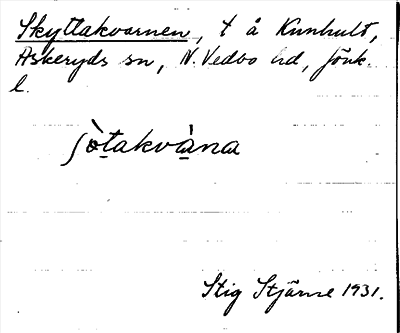 Skyttakvarnen, t å Kunhult,
Askeryds sn, N. Vedbo hd, Jönk.
l.
ʃò̠t̠akvà̠na
Stig Stjärne 1931.